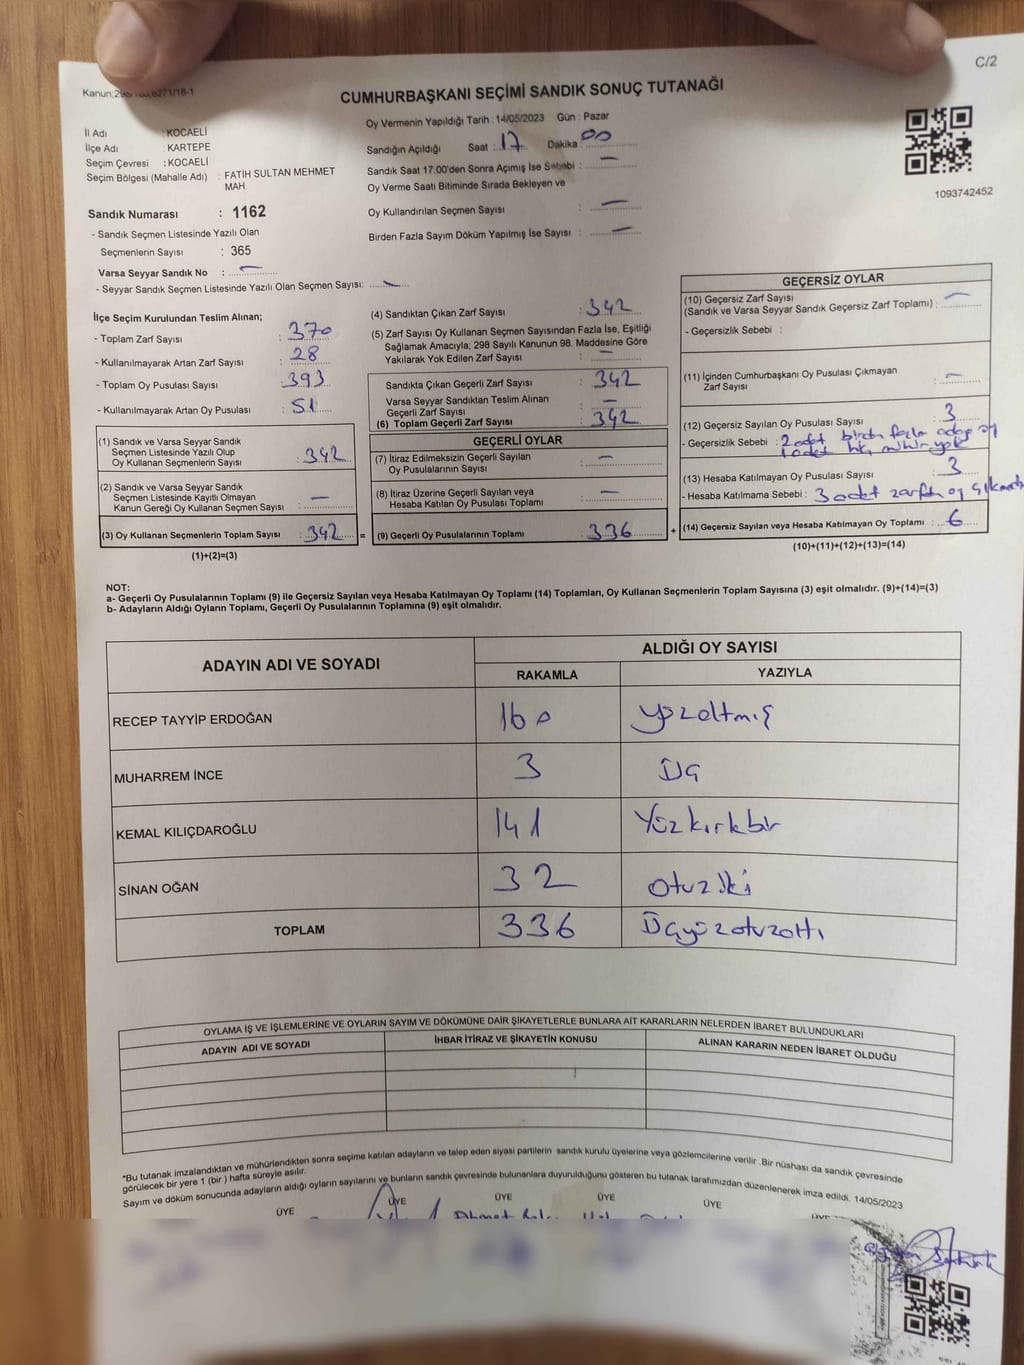 C/2
Kanun;298/ 6271/18-1
CUMHURBAŞKANI SEÇİMİ SANDIK SONUÇ TUTANAĞI
İl Adı : KOCAELİ
İlçe Adı : KARTEPE
Seçim Çevresi : KOCAELİ
Seçim Bölgesi (Mahalle Adı) : FATİH SULTAN MEHMET MAH
Sandık Numarası : 1162
- Sandık Seçmen Listesinde Yazılı Olan
Seçmenlerin Sayısı : 365
Varsa Seyyar Sandık No : —
- Seyyar Sandık Seçmen Listesinde Yazılı Olan Seçmen Sayısı: —
Oy Vermenin Yapıldığı Tarih : 14/05/2023 Gün : Pazar
Sandığın Açıldığı Saat : 17 Dakika : 00
Sandık Saat 17:00'den Sonra Açımış İse Sebebi : —
Oy Verme Saati Bitiminde Sırada Bekleyen ve
Oy Kullandırılan Seçmen Sayısı : —
Birden Fazla Sayım Döküm Yapılmış İse Sayısı : —
1093742452
İlçe Seçim Kurulundan Teslim Alınan;
- Toplam Zarf Sayısı : 370
- Kullanılmayarak Artan Zarf Sayısı : 28
- Toplam Oy Pusulası Sayısı : 393
- Kullanılmayarak Artan Oy Pusulası : 51
(1) Sandık ve Varsa Seyyar Sandık
Seçmen Listesinde Yazılı Olup
Oy Kullanan Seçmenlerin Sayısı : 342
(2) Sandık ve Varsa Seyyar Sandık
Seçmen Listesinde Kayıtlı Olmayan
Kanun Gereği Oy Kullanan Seçmen Sayısı : —
(3) Oy Kullanan Seçmenlerin Toplam Sayısı : 342 =
(1)+(2)=(3)
(4) Sandıktan Çıkan Zarf Sayısı : 342
(5) Zarf Sayısı Oy Kullanan Seçmen Sayısından Fazla İse, Eşitliği
Sağlamak Amacıyla; 298 Sayılı Kanunun 98. Maddesine Göre
Yakılarak Yok Edilen Zarf Sayısı : —
Sandıkta Çıkan Geçerli Zarf Sayısı : 342
Varsa Seyyar Sandıktan Teslim Alınan
Geçerli Zarf Sayısı : —
(6) Toplam Geçerli Zarf Sayısı : 342
GEÇERLİ OYLAR
(7) İtiraz Edilmeksizin Geçerli Sayılan
Oy Pusulalarının Sayısı : —
(8) İtiraz Üzerine Geçerli Sayılan veya
Hesaba Katılan Oy Pusulası Toplamı : —
(9) Geçerli Oy Pusulalarının Toplamı : 336 +
GEÇERSİZ OYLAR
(10) Geçersiz Zarf Sayısı
(Sandık ve Varsa Seyyar Sandık Geçersiz Zarf Toplamı) : —
- Geçersizlik Sebebi :
(11) İçinden Cumhurbaşkanı Oy Pusulası Çıkmayan
Zarf Sayısı : —
(12) Geçersiz Sayılan Oy Pusulası Sayısı : 3
- Geçersizlik Sebebi : 2 adet birden fazla adaya oy
1 adet hiç mühür yok
(13) Hesaba Katılmayan Oy Pusulası Sayısı : 3
- Hesaba Katılmama Sebebi : 3 adet zarftan oy çıkmadı
(14) Geçersiz Sayılan veya Hesaba Katılmayan Oy Toplamı : 6
(10)+(11)+(12)+(13)=(14)
NOT:
a- Geçerli Oy Pusulalarının Toplamı (9) ile Geçersiz Sayılan veya Hesaba Katılmayan Oy Toplamı (14) Toplamları, Oy Kullanan Seçmenlerin Toplam Sayısına (3) eşit olmalıdır. (9)+(14)=(3)
b- Adayların Aldığı Oyların Toplamı, Geçerli Oy Pusulalarının Toplamına (9) eşit olmalıdır.
ADAYIN ADI VE SOYADI ALDIĞI OY SAYISI
RAKAMLA YAZIYLA
RECEP TAYYİP ERDOĞAN 160 yüzaltmış
MUHARREM İNCE 3 Üç
KEMAL KILIÇDAROĞLU 141 Yüzkırkbir
SİNAN OĞAN 32 otuziki
TOPLAM 336 Üçyüzotuzaltı
OYLAMA İŞ VE İŞLEMLERİNE VE OYLARIN SAYIM VE DÖKÜMÜNE DAİR ŞİKAYETLERLE BUNLARA AİT KARARLARIN NELERDEN İBARET BULUNDUKLARI
ADAYIN ADI VE SOYADI İHBAR İTİRAZ VE ŞİKAYETİN KONUSU ALINAN KARARIN NEDEN İBARET OLDUĞU
*Bu tutanak imzalandıktan ve mühürlendikten sonra seçime katılan adayların ve talep eden siyasi partilerin sandık kurulu üyelerine veya gözlemcilerine verilir. Bir nüshası da sandık çevresinde
görülecek bir yere 1 (bir ) hafta süreyle asılır.
Sayım ve döküm sonucunda adayların aldığı oyların sayılarını ve bunların sandık çevresinde bulunanlara duyurulduğunu gösteren bu tutanak tarafımızdan düzenlenerek imza edildi. 14/05/2023
ÜYE ÜYE ÜYE ÜYE ÜYE ÜYE
Ahmet